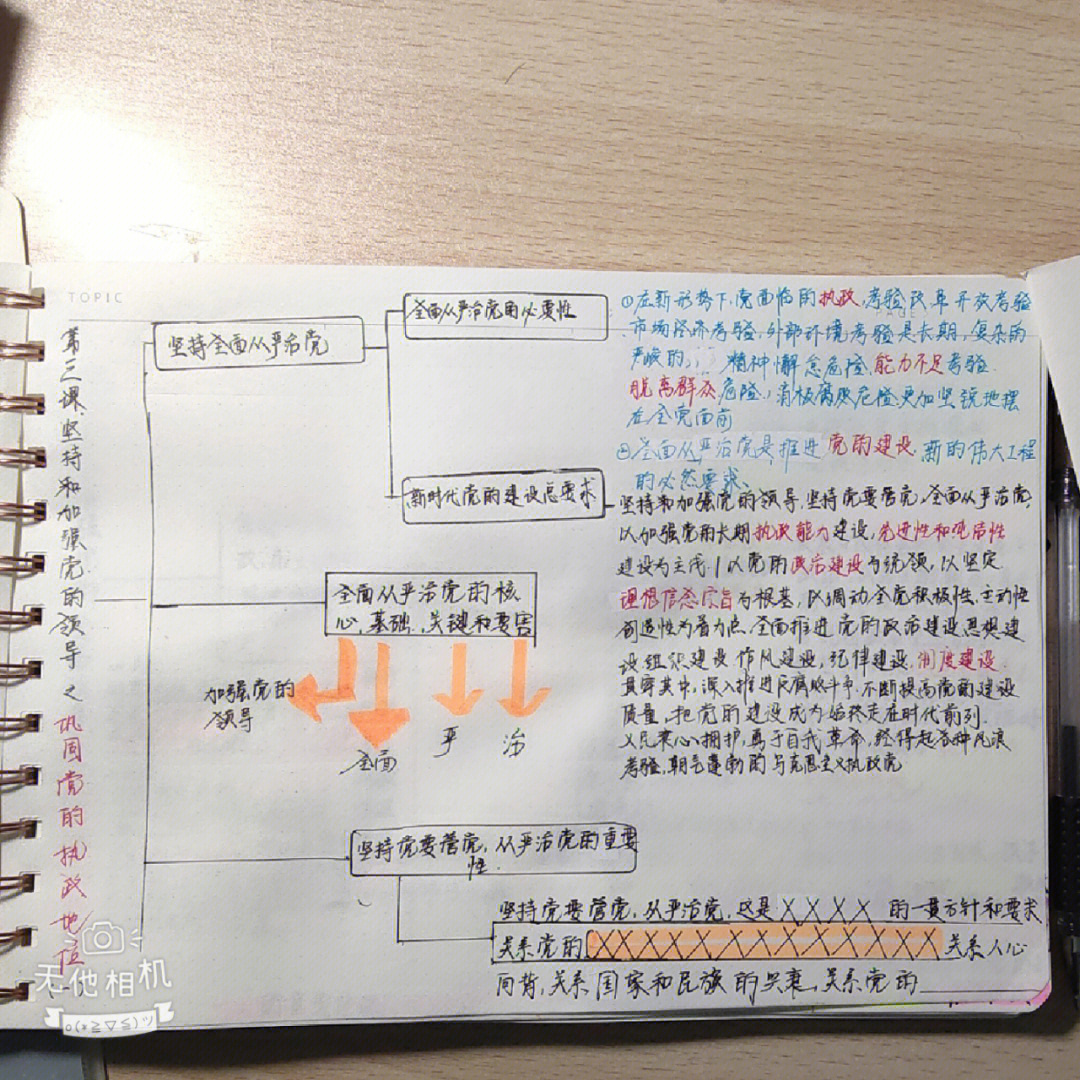 TOPIC
第三课坚持和加强党的领导之巩固党的执政地位
坚持全面从严治党
全面从严治党的必要性
①在新形势下,党面临的执政,考验改革开放考验
市场经济考验,外部环境考验是长期,复杂的
严峻的,精神懈怠危险,能力不足考验
脱离群众危险,消极腐败危险更加尖锐地摆
在全党面前
②全面从严治党是推进党的建设新的伟大工程
的必然要求、
新时代党的建设总要求
坚持和加强党的领导,坚持党要管党,全面从严治党,
以加强党的长期执政能力建设,先进性和纯洁性
建设为主线,以党的政治建设为统领,以坚定
理想信念宗旨为根基,以调动全党积极性,主动性
创造性为着力点,全面推进党的政治建设思想建
设组织建设作风建设,纪律建设,制度建设
贯穿其中,深入推进反腐败斗争,不断提高党的建设
质量,把党的建设成为始终走在时代前列
人民衷心拥护,勇于自我革命,经得起各种风浪
考验,朝气蓬勃的马克思主义执政党
全面从严治党的核
心,基础、关键和要害
加强党的
领导
全面
严
治
坚持党要管党,从严治党的重要
性.
坚持党要管党,从严治党,这是XXXX的一贯方针和要求
关系党的XXXXXXXXXXXXXX关系人心
向背,关系国家和民族的兴衰,关系党的
无他相机
o(*≧▽≦)ツ